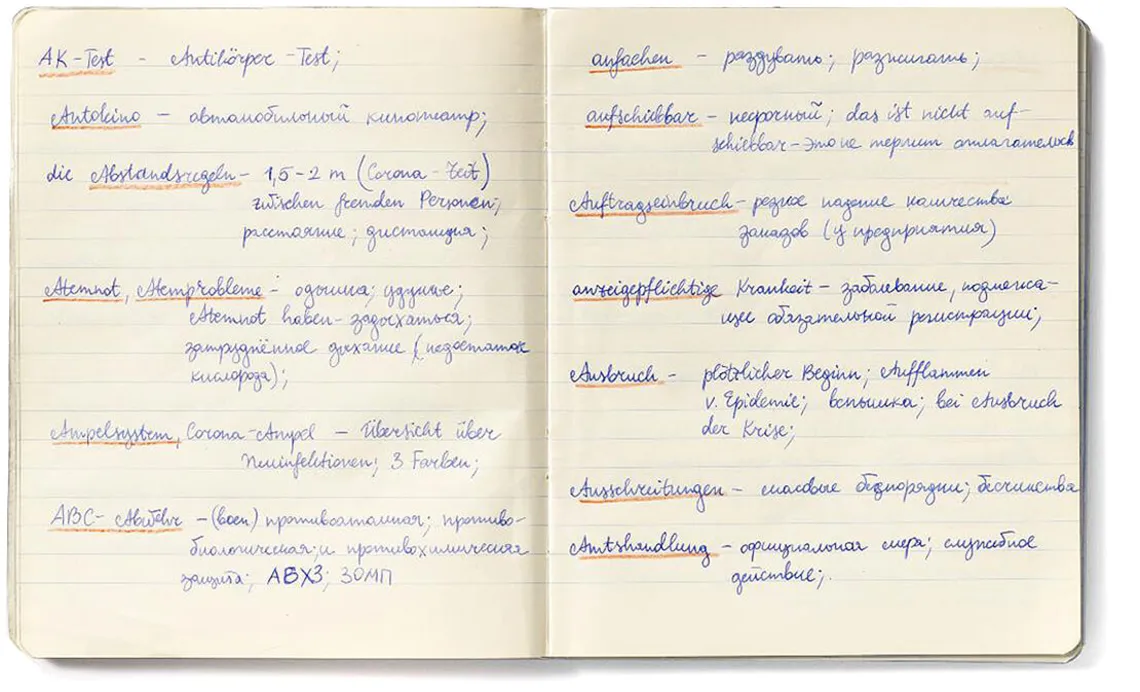 AK-Test - Antikörper-Test;
Autokino - автомобильный кинотеатр;
die Abstandsregeln - 1,5-2 m (Corona-Zeit)
zwischen fremden Personen;
расстояние; дистанция;
Atemnot, Atemprobleme - одышка; удушье;
Atemnot haben - задыхаться;
затруднённое дыхание (недостаток
кислорода);
Ampelsystem, Corona-Ampel - Übersicht über
Neuinfektionen; 3 Farben;
ABC-Abwehr - (воен) противоатомная; противо-
биологическая; и противохимическая
защита; АБХЗ; ЗОМП
anfachen - раздувать; разжигать;
aufschiebbar - несрочный; das ist nicht auf-
schiebbar - это не терпит отлагательств
Auftragseinbruch - резкое падение количества
заказов (у предприятия)
anzeigepflichtige Krankheit - заболевание, подлежа-
щее обязательной регистрации;
Ausbruch - plötzlicher Beginn; Aufflammen
v. Epidemie; вспышка; bei Ausbruch
der Krise;
Ausschreitungen - массовые беспорядки; бесчинства
Amtshandlung - официальная мера; служебное
действие;